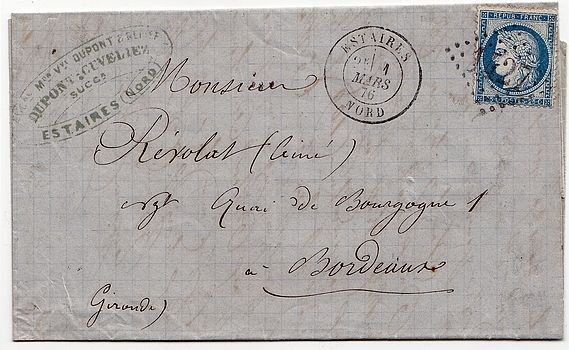 Mon Vve DUPONT
DUPONT & CUVELIER
SUCCR
ESTAIRES (NORD)
ESTAIRES
2E 1
MARS
76
NORD
REPUB. FRANC.
25 POSTES 25
Monsieur
Révolat (aîné)
Quai de Bourgogne 1
à Bordeaux
Gironde)